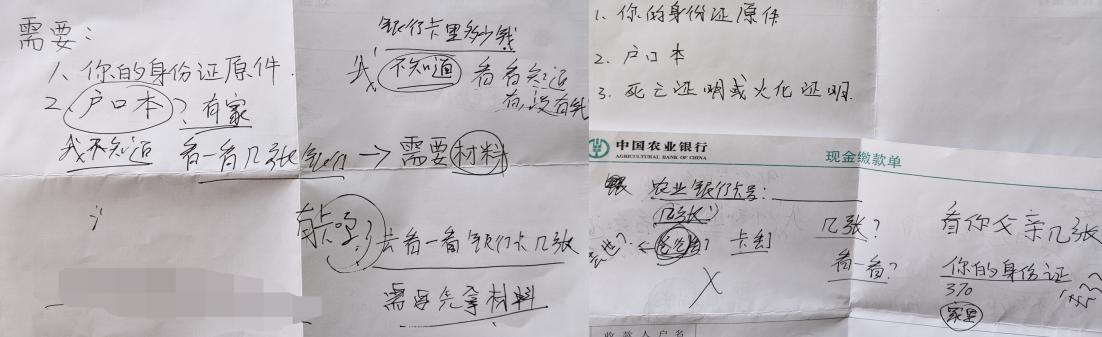 需要：
1、你的身份证原件.
2、户口本？有家
我不知道 看一看几张银行→需要材料
银行卡里多少钱
我 不知道 看看知道
有没有钱
有卡吗？去看一看银行卡几张
需要先拿材料
1、你的身份证原件
2、户口本
3、死亡证明或火化证明.
中国农业银行
AGRICULTURAL BANK OF CHINA
现金缴款单
农业银行卡号：
几张？
卡
几张？
看一看？
看你父亲几张
你的身份证
370
家里
收款人户名